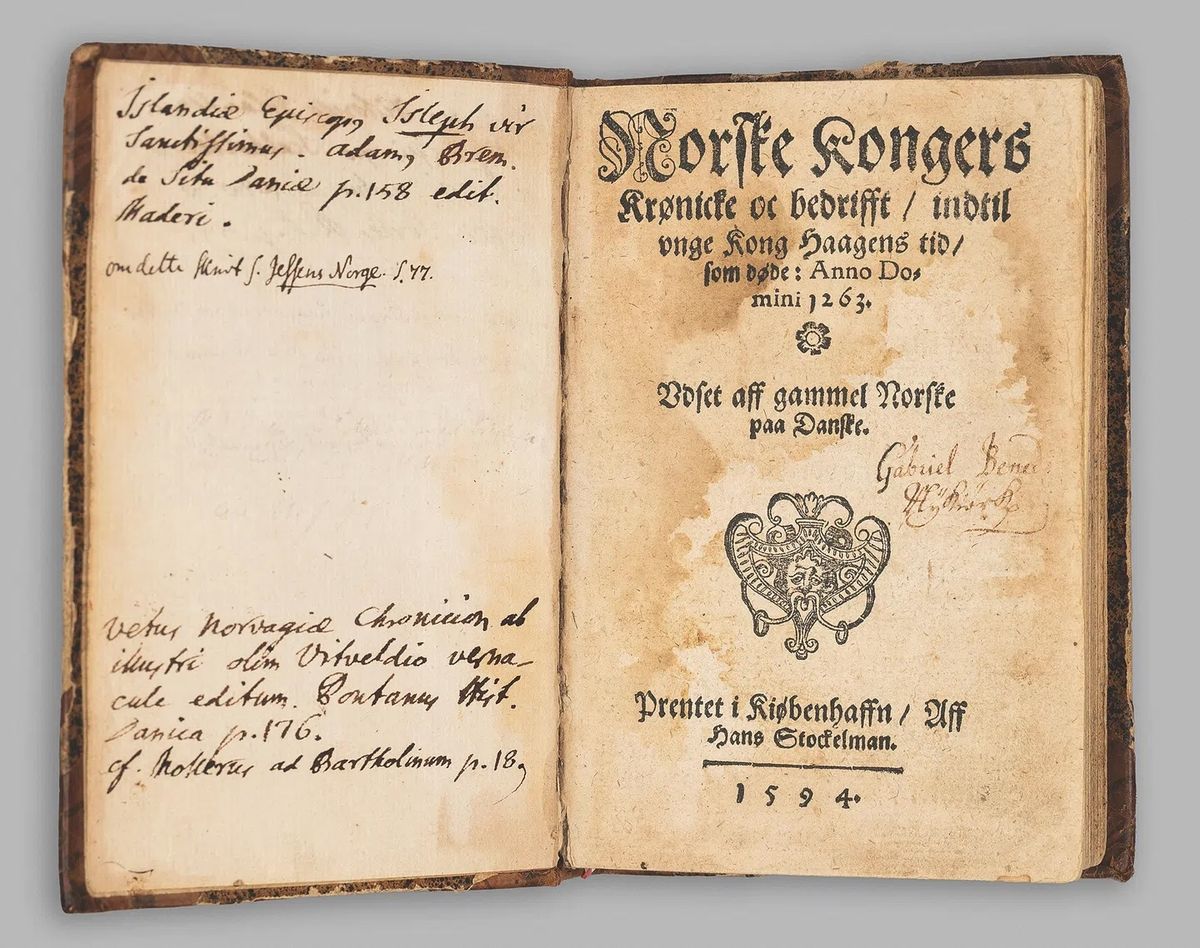 Islandiæ Episcopꝰ Isleph vir
Sanctissimus. Adamꝰ Brem.
de Situ Daniæ p. 158 edit.
Maderi.
om dette Skrivt s. Jessens Norge. S. 77.
Vetus Norvagiæ Chronicon ab
illustri olim Vitveldio verna-
cule editum. Pontanus Hist.
Danica p. 176.
cf. Mollerus ad Bartholinum p. 18
Norske Kongers
Krønicke oc bedrifft / indtil
vnge Kong Haagens tid /
som døde: Anno Do-
mini 1263.
Vdset aff gammel Norske
paa Danske.
Gabriel
Prentet i Kiøbenhaffn / Aff
Hans Stockelman.
1594.